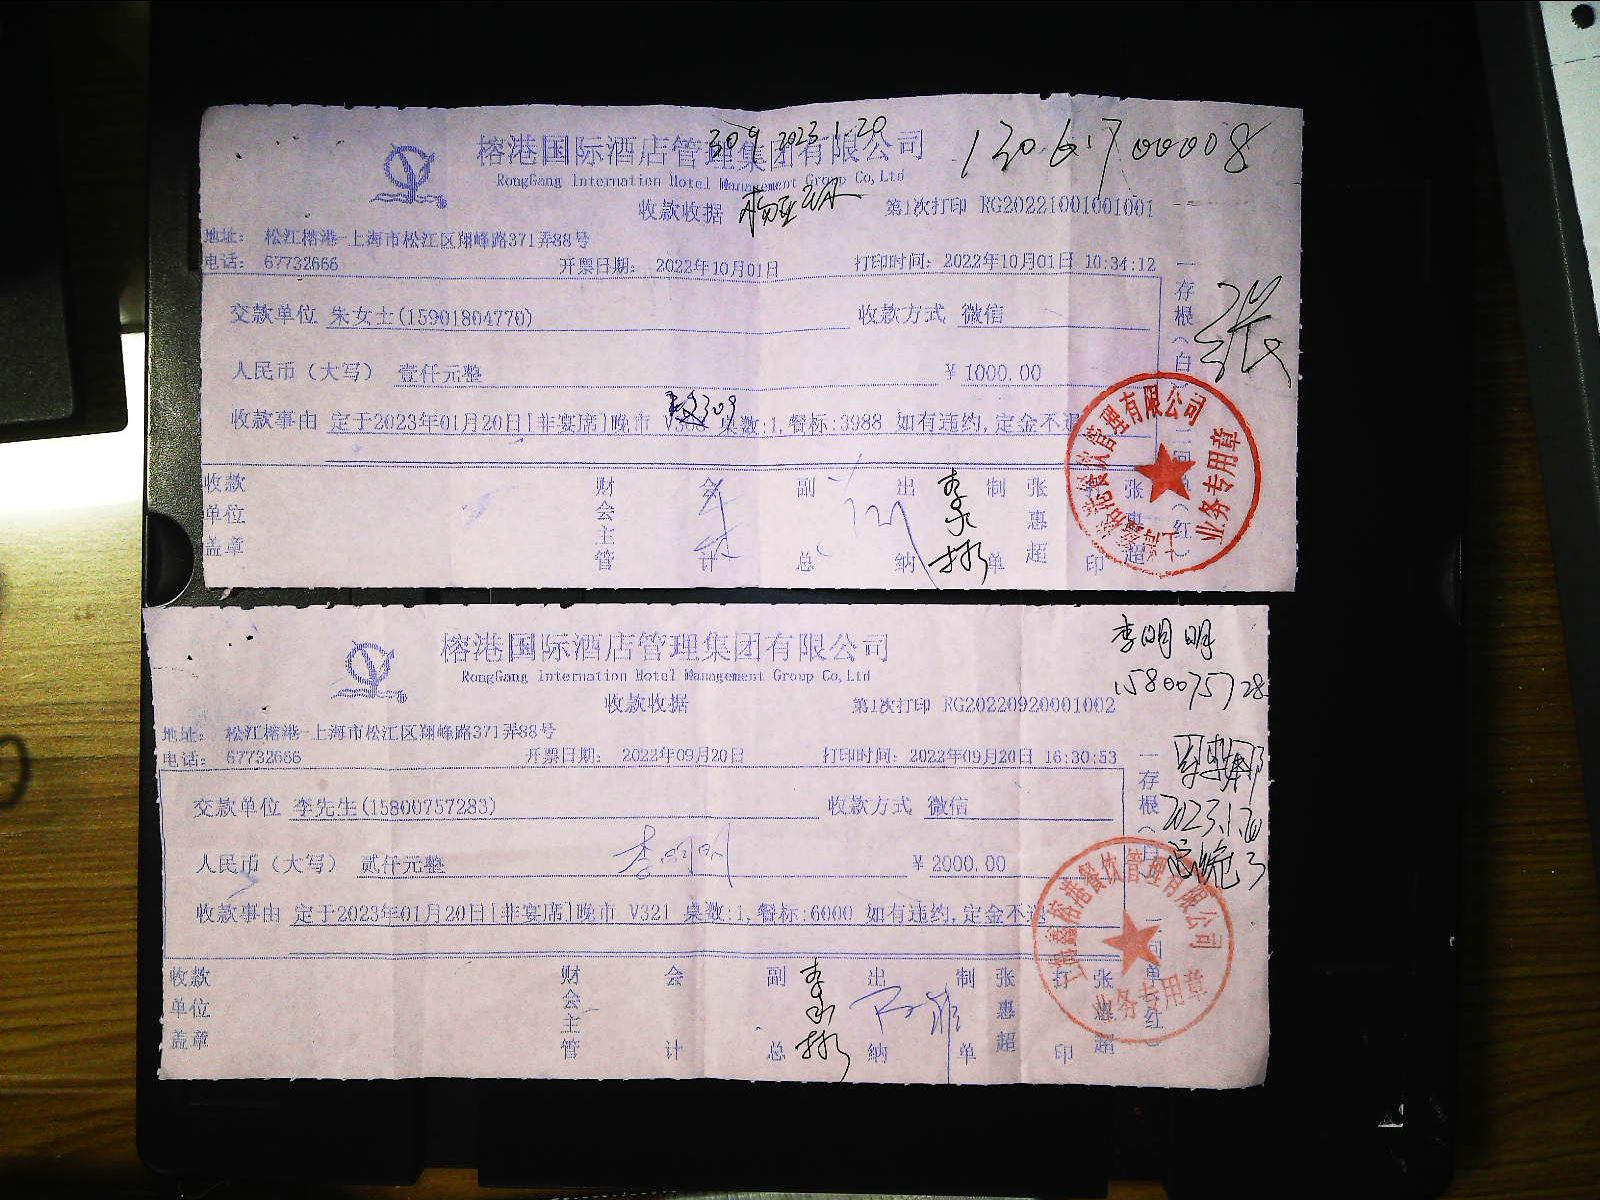 榕港国际酒店管理集团有限公司
309 2023.1.20
13061700008
RongGang Internation Hotel Management Group Co,Ltd
收款收据
第1次打印 RG20221001001001
地址: 松江榕港-上海市松江区翔峰路371弄88号
电话: 67732666 开票日期: 2022年10月01日 打印时间: 2022年10月01日 10:34:12
交款单位 朱女士(15901804770) 收款方式 微信
张
人民币(大写) 壹仟元整 ¥ 1000.00
309
收款事由 定于2023年01月20日[非宴席]晚市 V308 桌数:1,餐标:3988 如有违约,定金不退
收款单位盖章 财会主管 会计 副总 出纳 李永彬 制单 张惠超 打印 张惠超
一存根(白) 二回单(红)
上海鑫榕港餐饮管理有限公司
业务专用章
榕港国际酒店管理集团有限公司
李明明
RongGang Internation Hotel Management Group Co,Ltd
1580075728
收款收据
第1次打印 RG20220920001002
地址: 松江榕港-上海市松江区翔峰路371弄88号
电话: 67732666 开票日期: 2022年09月20日 打印时间: 2022年09月20日 16:30:53
交款单位 李先生(15800757283) 收款方式 微信
2023.1.20
人民币(大写) 贰仟元整 李明明 ¥ 2000.00
收款事由 定于2023年01月20日[非宴席]晚市 V321 桌数:1,餐标:6000 如有违约,定金不退
收款单位盖章 财会主管 会计 副总 李永彬 出纳 制单 张惠超 打印 张惠超
一存根(白) 二回单(红)
上海鑫榕港餐饮管理有限公司
业务专用章